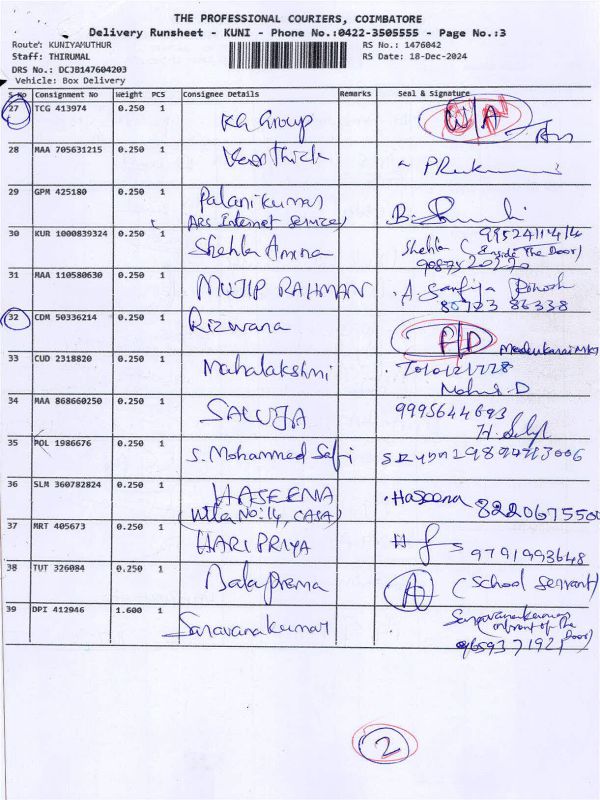 THE PROFESSIONAL COURIERS, COIMBATORE
Delivery Runsheet - KUNI - Phone No.:0422-3505555 - Page No.:3
Route: KUNIYAMUTHUR
RS No.: 1476042
Staff: THIRUMAL
RS Date: 18-Dec-2024
DRS No.: DCJB147604203
Vehicle: Box Delivery
S No Consignment No Weight PCS Consignee Details Remarks Seal & Signature
27 TCG 413974 0.250 1 KG Group N/A
28 MAA 705631215 0.250 1
29 GPM 425180 0.250 1 Palanikumar
ARS Internet Services
30 KUR 1000839324 0.250 1 Shehla Amina 9952411414
Shehla (Inside The Door)
31 MAA 110580630 0.250 1 MUJIP RAHMAN
80723 86338
32 CDM 50336214 0.250 1 Rizwana F/D
33 CUD 2318820 0.250 1 Mahalakshmi
34 MAA 868660250 0.250 1 SALUJA 9995644693
35 POL 1986676 0.250 1 S. Mohammed Safi
36 SLM 360782824 0.250 1 HASEENA Haseena
(Villa No: 14, CASA) 8220675500
37 MRT 405673 0.250 1 HARI PRIYA 9791993648
38 TUT 326084 0.250 1 Balaprema A (School Servant)
39 DPI 412946 1.600 1 Saravanakumar Saravanakumar
(Infront of The Door)
9659371921
2